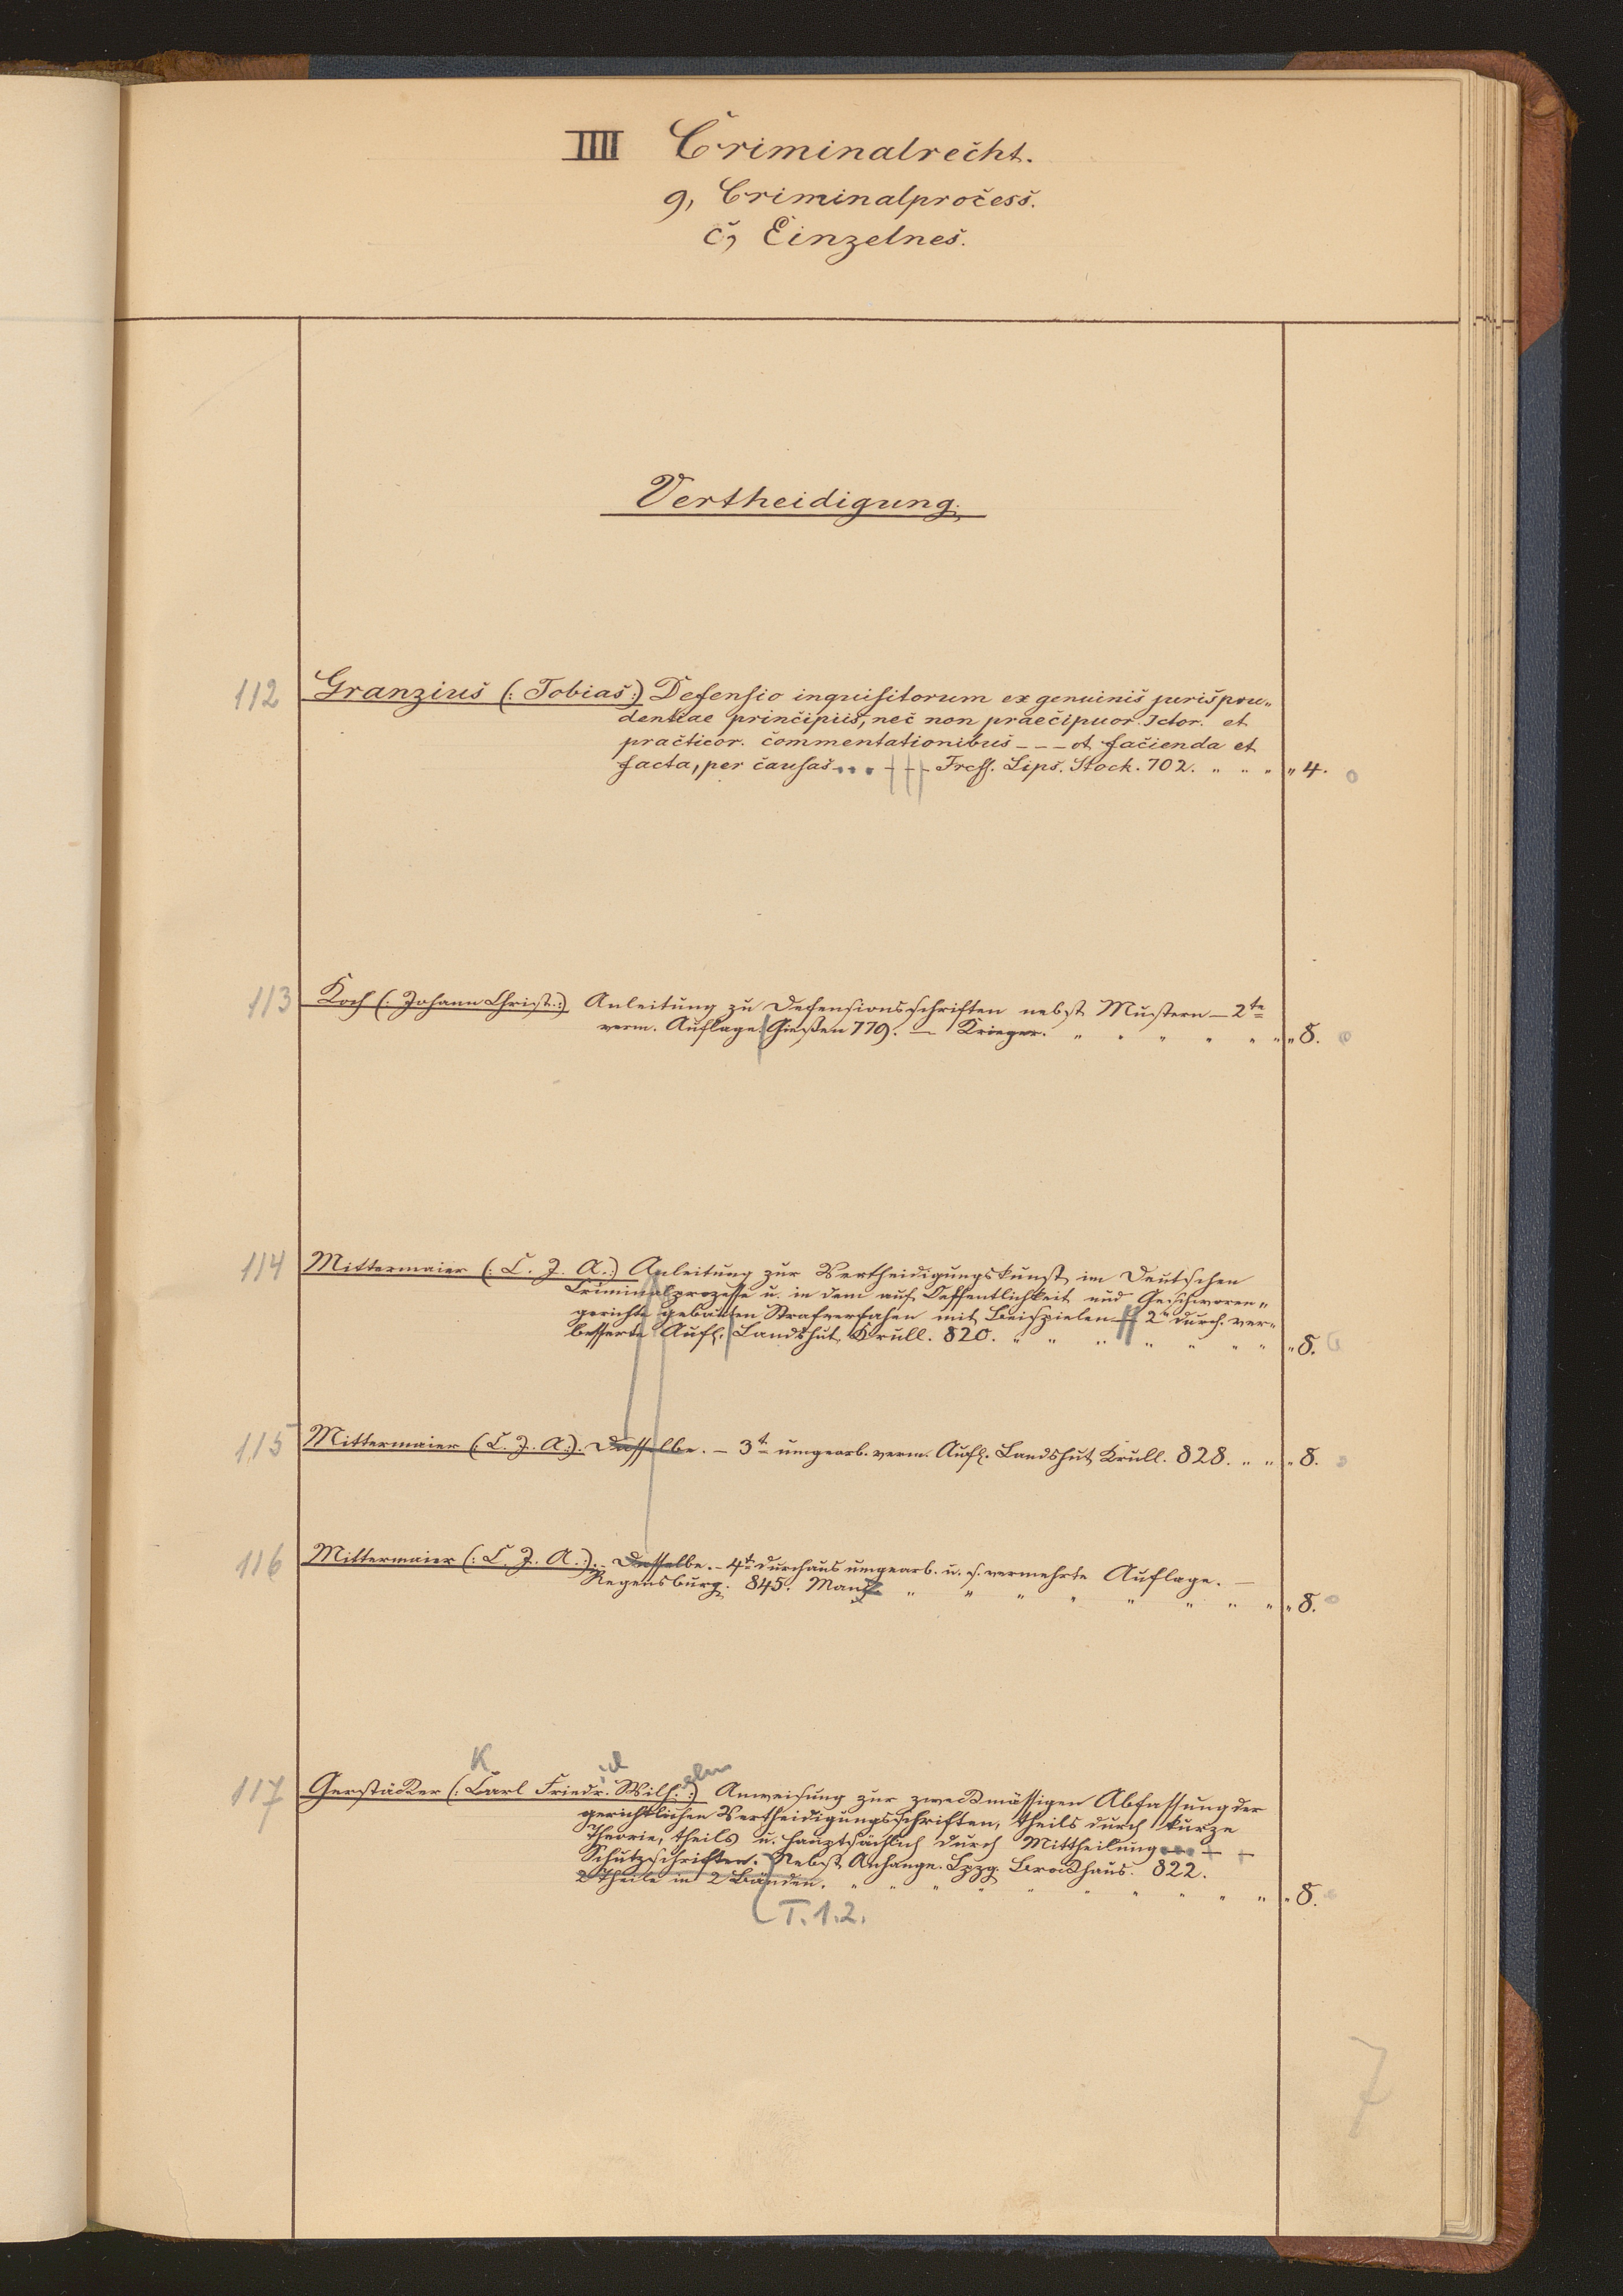 IIII Criminalrecht.
g, Criminalprocess.
c, Einzelnes.
Vertheidigung.
112 Granzius (: Tobias :) Defensio inquisitorum ex genuinis jurispru„
dentiae principiis, nec non praecipuor. Ictor. et
practicor. commentationibus - - - ot facienda et
facta, per causas ... - - - Frcff. Lips. Stock. 702. „ „ „ „ 4. o
113 Koch (: Johann Christ. :) Anleitung zu Defensionsschriften nebst Mustern — 2te
verm. Auflage. Gießen 779. — Krieger. „ „ „ „ „ „ „ 8. o
114 Mittermaier (: C. J. A. :) Anleitung zur Vertheidigungskunst im Deutschen
Criminalprozesse u. in dem auf Oeffentlichkeit und Geschworen„
gerichte gebauten Strafverfahen mit Beispielen — 2e durch. ver„
besserte Aufl. Landshut, Krull. 820. „ „ „ „ „ „ „ „ 8. o
115 Mittermaier (: C. J. A. :). Dasselbe. — 3t umgearb. verm. Aufl. Landshut Krull. 828. „ „ „ 8. o
116 Mittermaier (: C. J. A. :). Dasselbe. — 4te durchaus umgearb. u. s. vermehrte Auflage. —
Regensburg. 845. Manz „ „ „ „ „ „ „ „ „ 8. o
K id elm
117 Gerstäcker (: Carl Friedr. Wilh. :) Anweisung zur zweckmässigen Abfassung der
gerichtlichen Vertheidigungsschriften, theils durch kurze
Theorie, theils u. hauptsächlich durch Mittheilung ... — —
Schutzschriften. Nebst Anhange. Lpzg. Brockhaus. 822.
2 Theile in 2 Bänden. „ „ „ „ „ „ „ „ „ „ „ 8. o
T. 1.2.
7